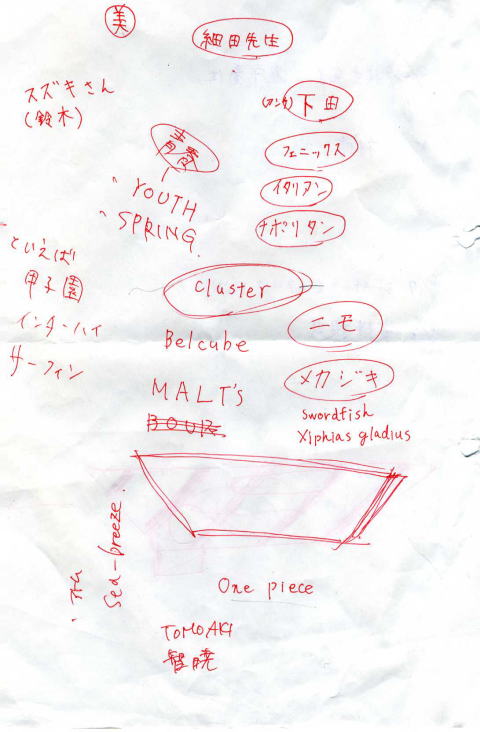 美
細田先生
スズキさん
(鈴木)
下田
青春
フェニックス
"YOUTH
イタリアン
"SPRING.
ナポリタン
といえば
甲子園
インターハイ
サーフィン
cluster
ニモ
Belcube
メカジキ
MALT's
swordfish
Xiphias gladius
Sea-breeze.
One piece
TOMOAKI
智暁